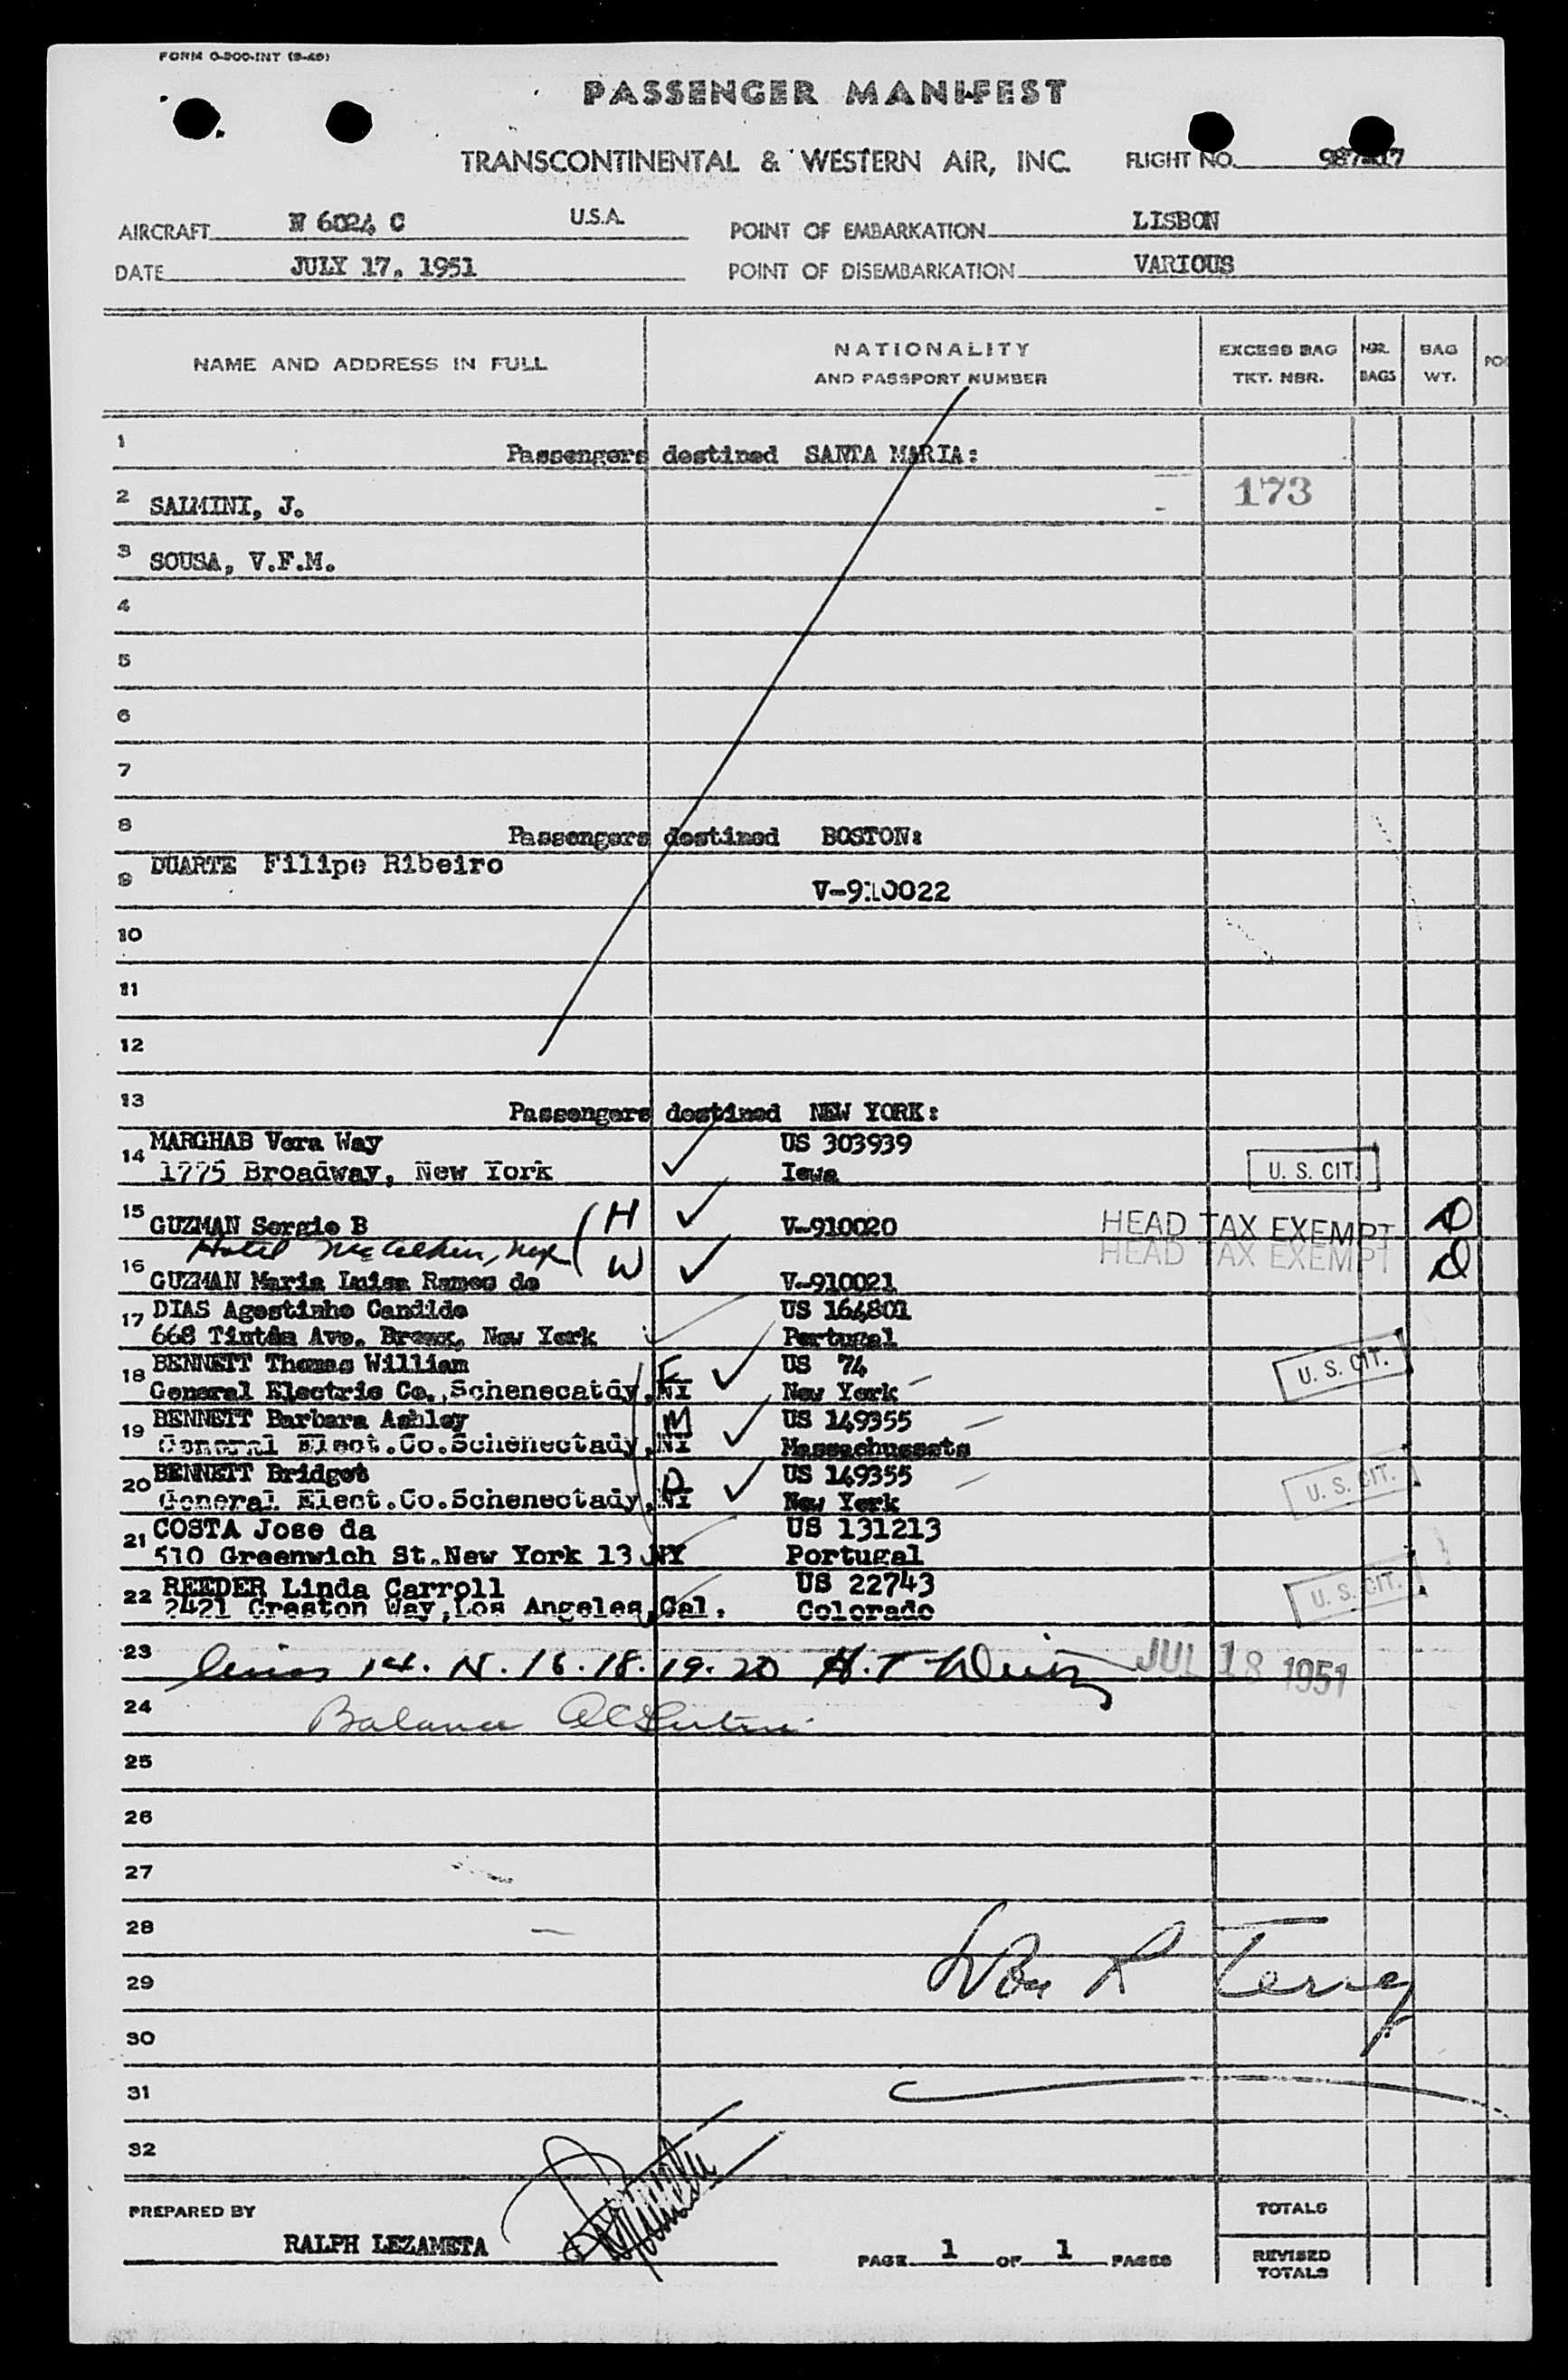 FORM O-200-INT (9-49)
PASSENGER MANIFEST
TRANSCONTINENTAL & WESTERN AIR, INC. FLIGHT NO.
AIRCRAFT N 6024 C U.S.A. POINT OF EMBARKATION LISBON
DATE JULY 17, 1951 POINT OF DISEMBARKATION VARIOUS
NAME AND ADDRESS IN FULL NATIONALITY AND PASSPORT NUMBER EXCESS BAG TKT. NBR. NBR. BAGS BAG WT.
1 Passengers destined SANTA MARIA:
2 SALMINI, J. 173
3 SOUSA, V.F.M.
4
5
6
7
8 Passengers destined BOSTON:
9 DUARTE Filipe Ribeiro V-910022
10
11
12
13 Passengers destined NEW YORK:
14 MARGHAB Vera Way US 303939
1775 Broadway, New York Iowa U. S. CIT.
15 GUZMAN Sergio B H V-910020 HEAD TAX EXEMPT
Hotel McAlpin, W HEAD TAX EXEMPT
16 GUZMAN Maria Luisa Ramos de V-910021
17 DIAS Agostinho Candido US 164801
668 Tinton Ave. Bronx, New York Portugal
18 BENNETT Thomas William F US 74 U. S. CIT.
General Electric Co., Schenecatdy, NY New York
19 BENNETT Barbara Ashley M US 149355
General Elect.Co.Schenectady, NY Massachussets
20 BENNETT Bridget D US 149355 U. S. CIT.
General Elect.Co.Schenectady, NY New York
21 COSTA Jose da US 131213
510 Greenwich St.New York 13 NY Portugal
22 REEDER Linda Carroll US 22743 U. S. CIT.
2421 Creston Way,Los Angeles,Cal. Colorado
23 Lines 14. 15. 16. 18. 19. 20 JUL 18 1951
24 Balance
25
26
27
28
29 Terry
30
31
32
PREPARED BY TOTALS
RALPH LEZAMETA PAGE 1 OF 1 PAGES REVISED TOTALS